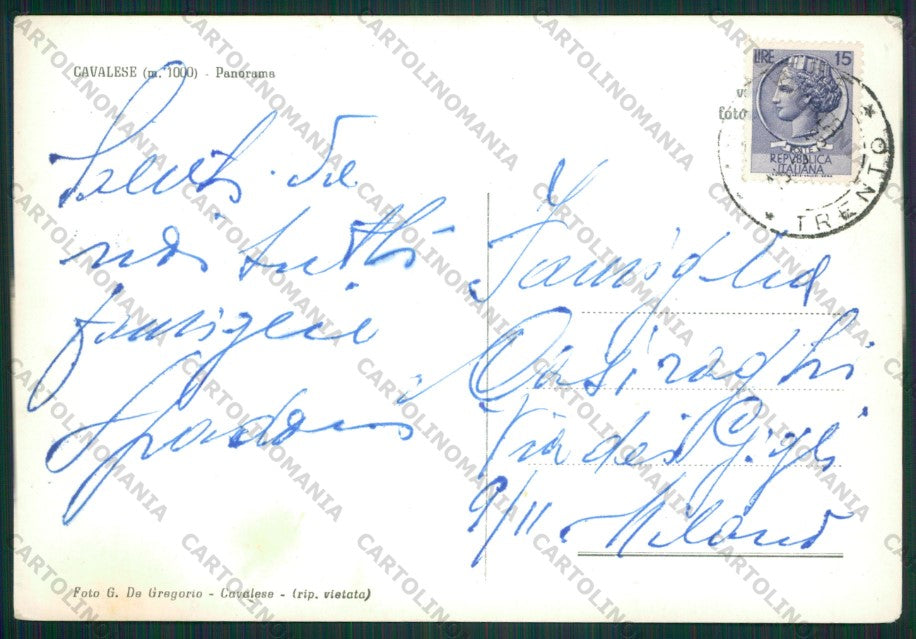 CAVALESE (m. 1000) - Panorama
Saluti da
noi tutti
famiglia
Spadoni
LIRE 15
REPVBBLICA
ITALIANA
* TRENTO *
Famiglia
Casiraghi
Via dei Gigli
9/11 Milano
Foto G. De Gregorio - Cavalese - (rip. vietata)
CARTOLINOMANIA